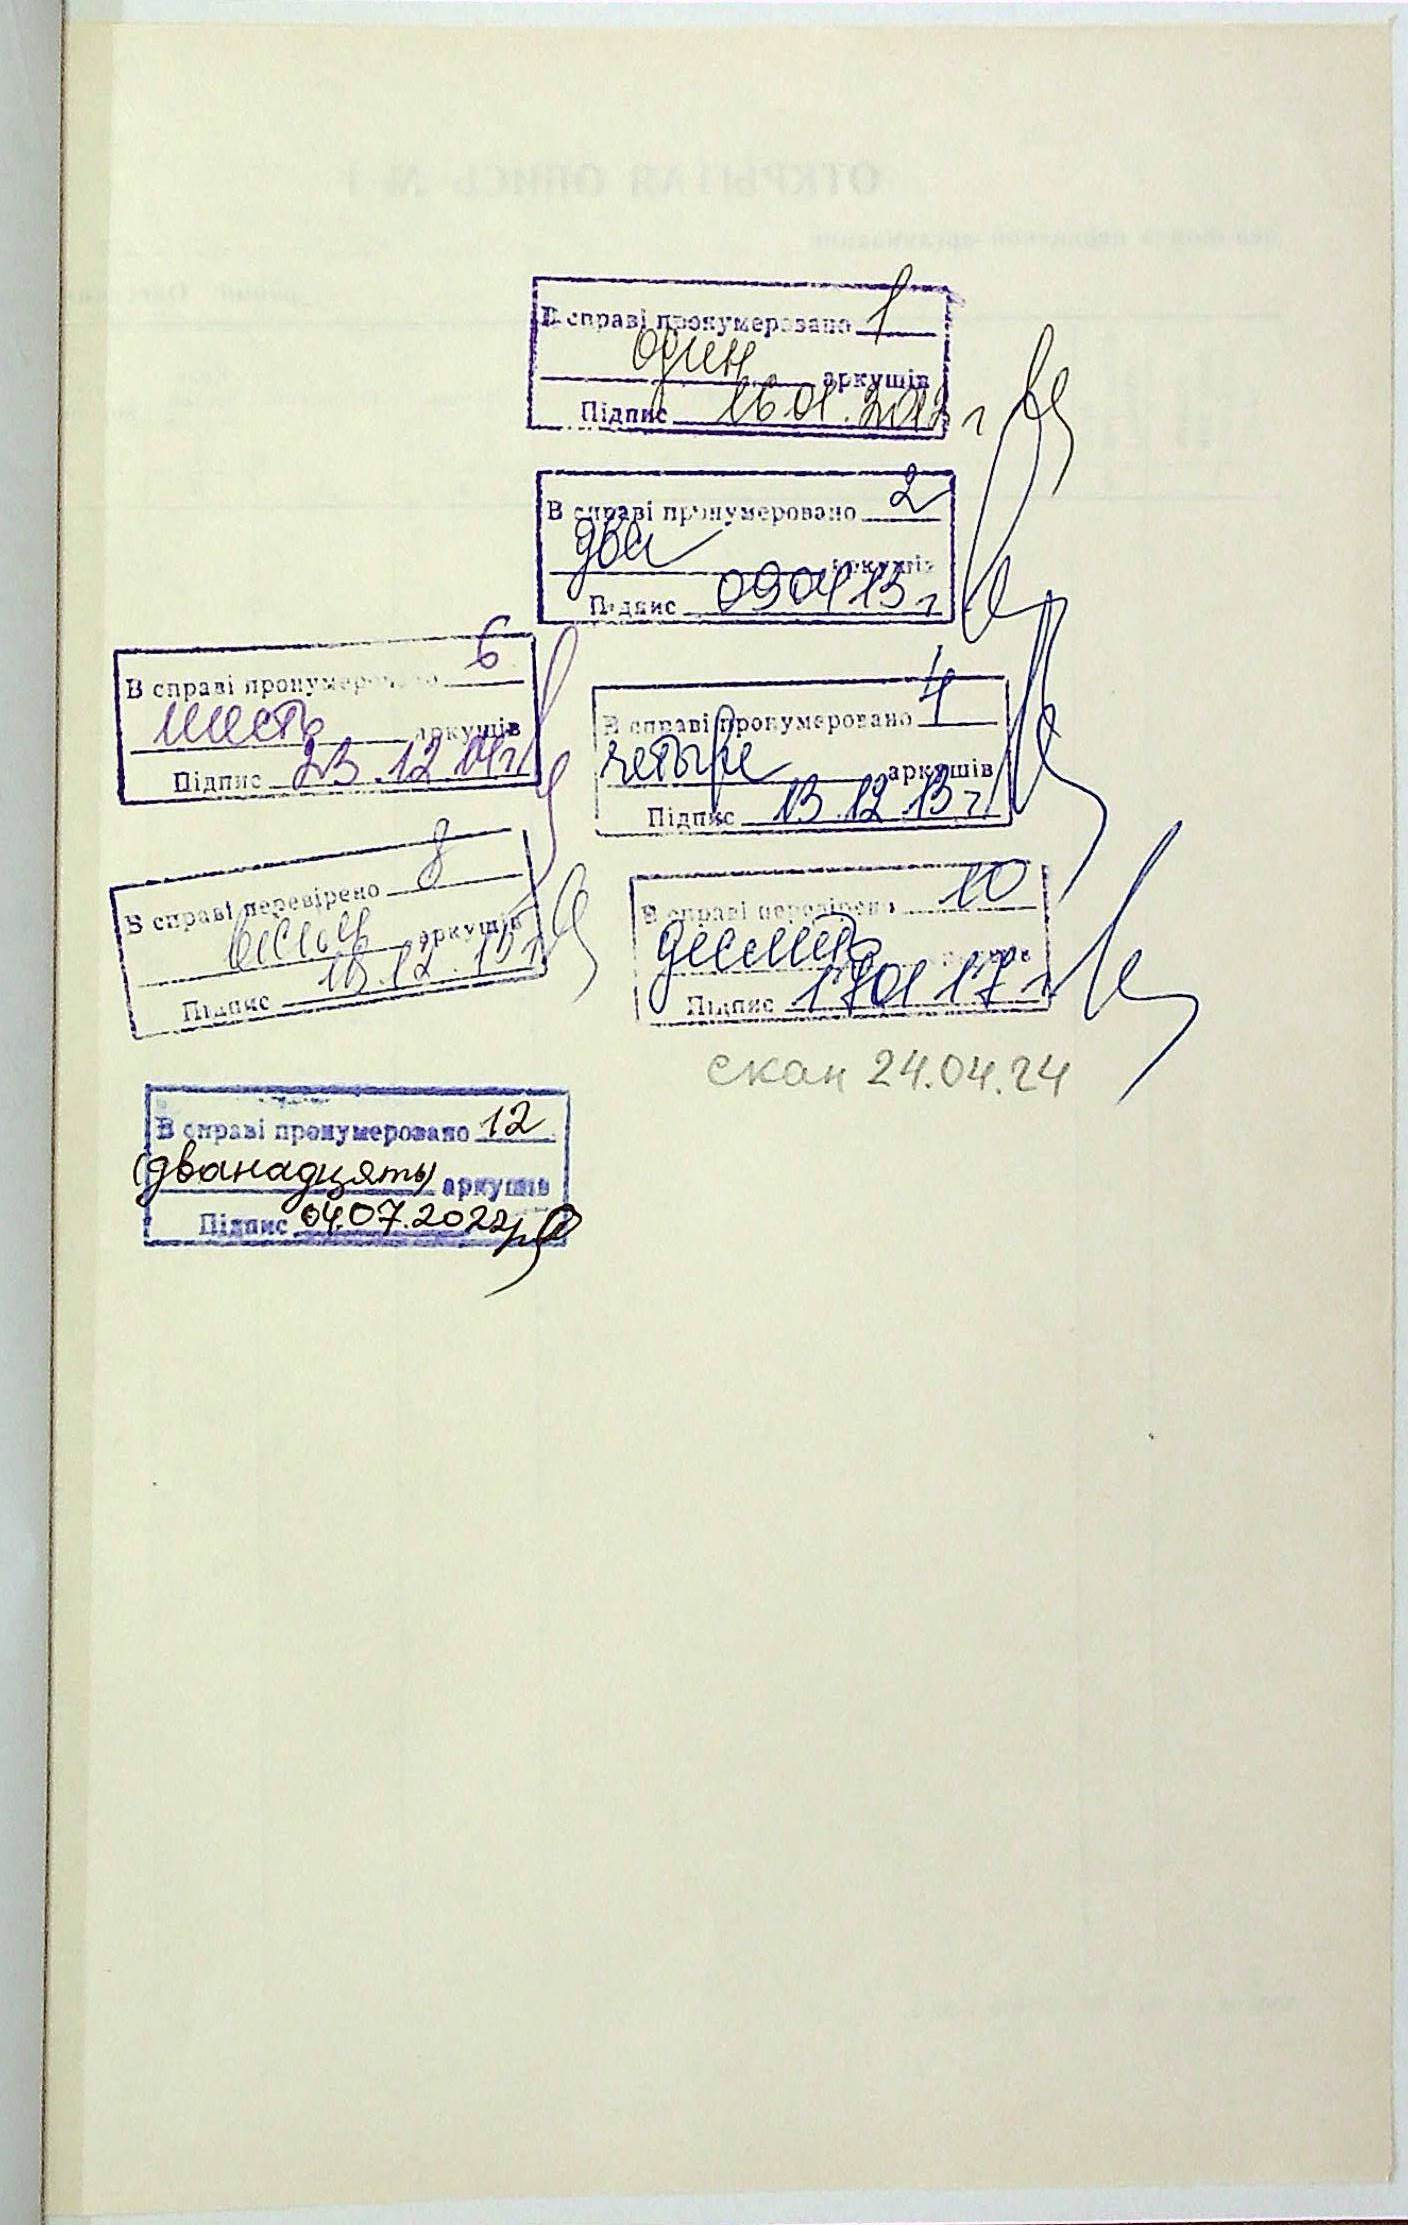 В справі пронумеровано 1
один аркушів
Підпис 16 01. 2012 г
В справі пронумеровано 2
два аркушів
Підпис 09 04 13 г
В справі пронумеровано 6
шесть аркушів
Підпис 23.12.14г
В справі пронумеровано 4
четыре аркушів
Підпис 13 12 13 г.
В справі перевірено 8
восемь аркушів
Підпис 18.12.15г
В справі перевірено 10
десять
Підпис 17 01 17 г
скан 24.04.24
В справі пронумеровано 12
(дванадцять) аркушів
Підпис 04.07.2022р